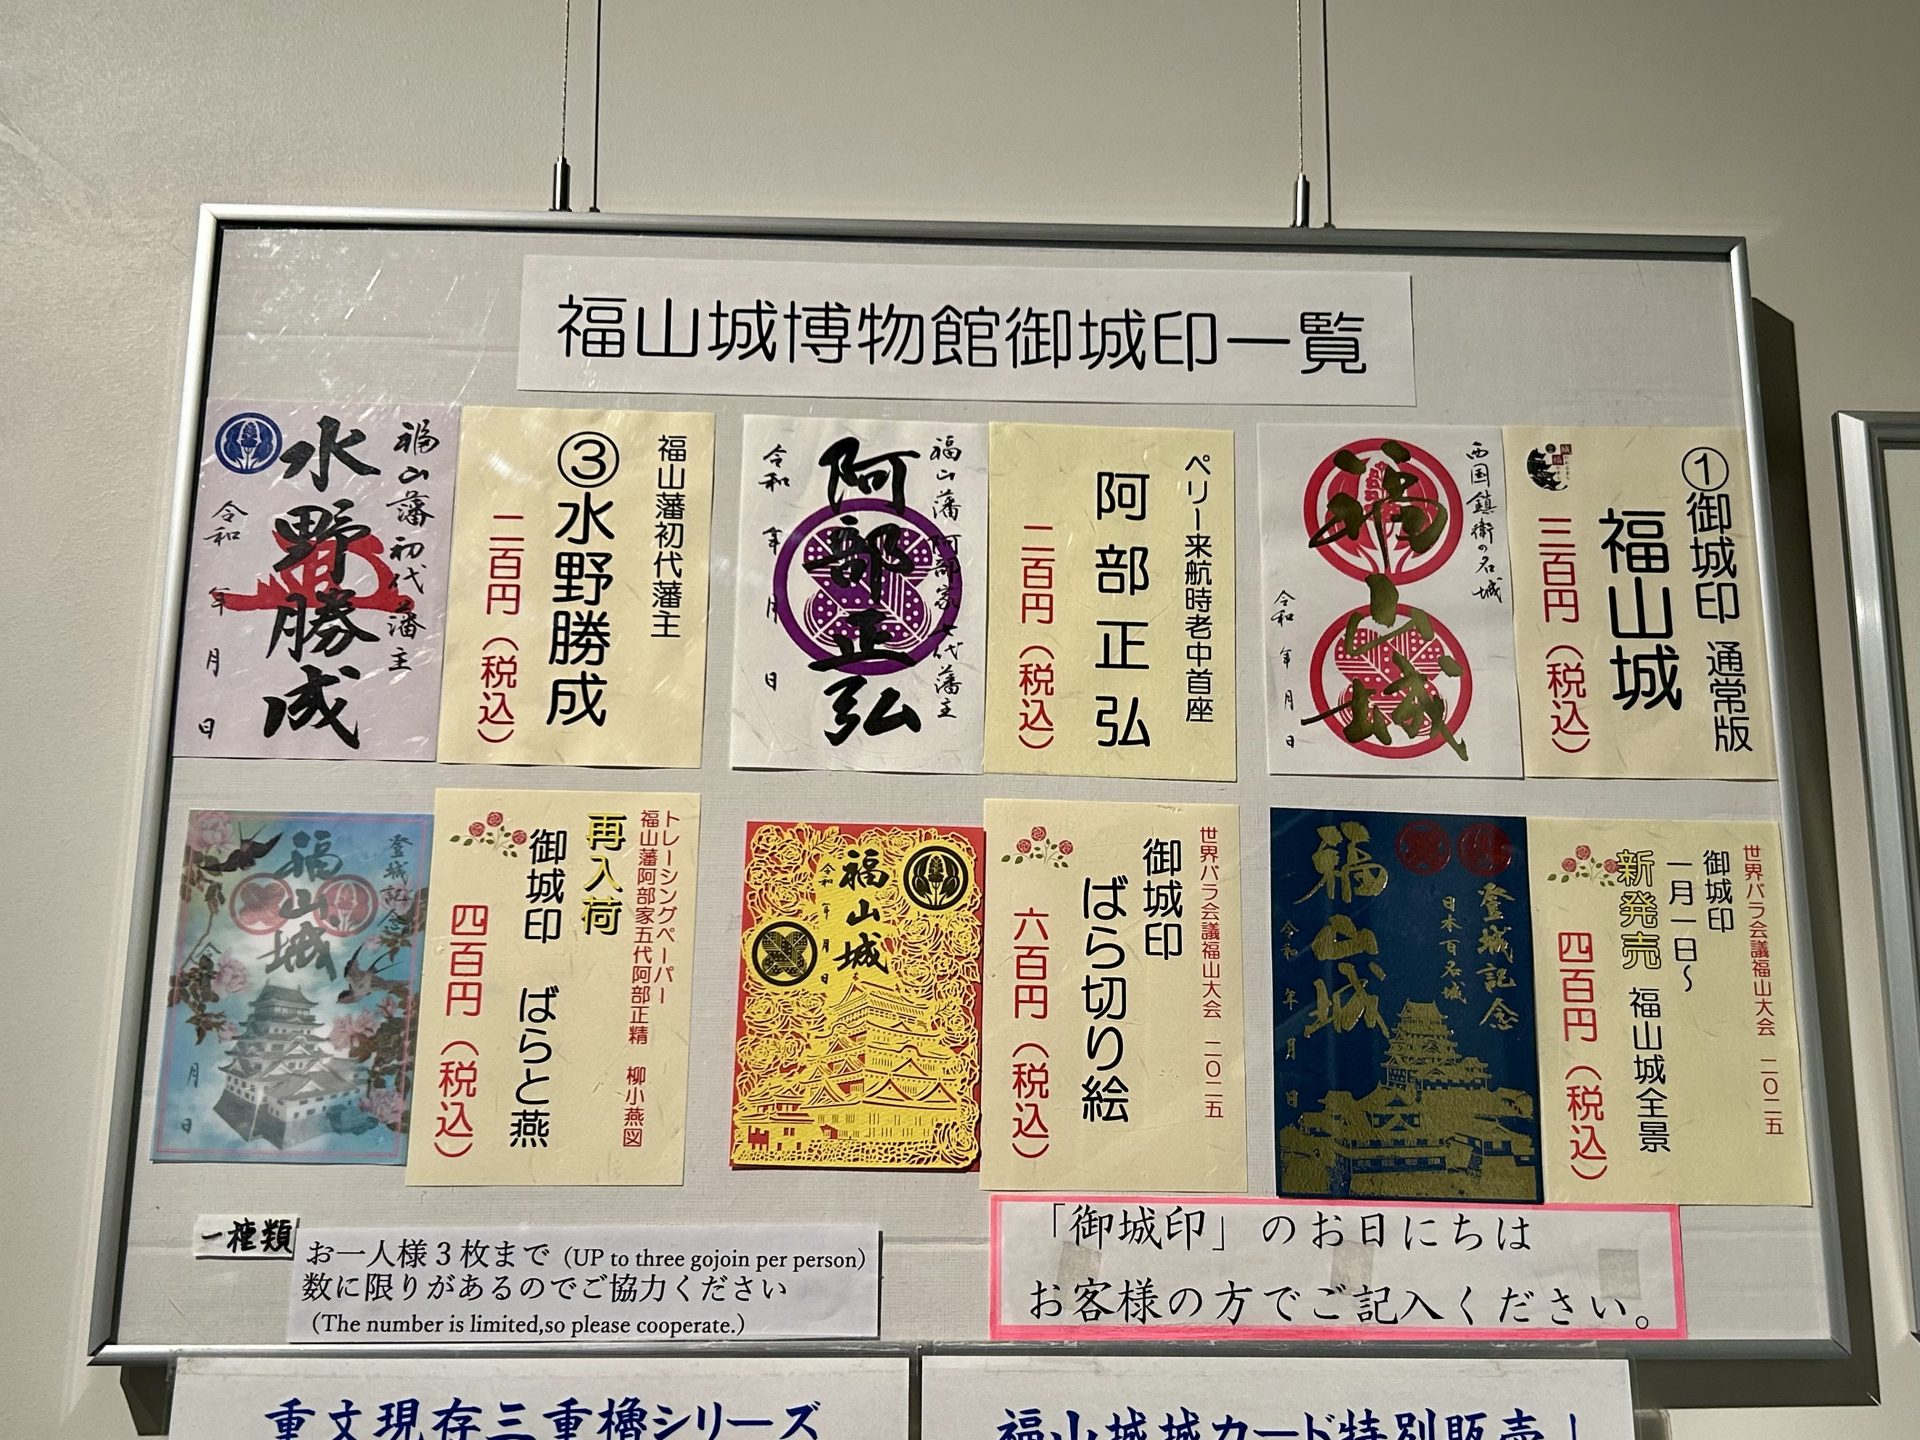 福山城博物館御城印一覧
①御城印 通常版
福山城
三百円（税込）
西国鎮衛の名城
福山城
令和 年 月 日
ペリー来航時老中首座
阿部正弘
二百円（税込）
福山藩阿部家七代藩主
阿部正弘
令和 年 月 日
福山藩初代藩主
③水野勝成
二百円（税込）
福山藩初代藩主
水野勝成
令和 年 月 日
世界バラ会議福山大会 二〇二五
御城印
一月一日～
新発売 福山城全景
四百円（税込）
登城記念
日本百名城
福山城
令和 年 月 日
世界バラ会議福山大会 二〇二五
御城印
ばら切り絵
六百円（税込）
福山城
令和 年 月 日
トレーシングペーパー
福山藩阿部家五代阿部正精 柳小燕図
再入荷
御城印 ばらと燕
四百円（税込）
登城記念
福山城
令 月 日
一種類
お一人様３枚まで（UP to three gojoin per person）
数に限りがあるのでご協力ください
（The number is limited,so please cooperate.）
「御城印」のお日にちは
お客様の方でご記入ください。
重文現存三重櫓シリーズ
福山城城カード特別販売！